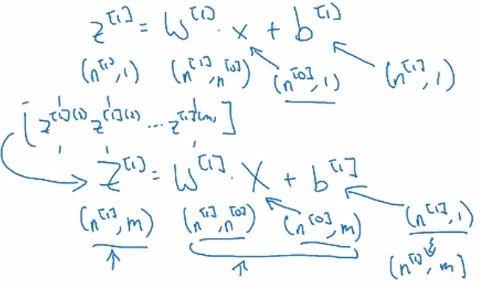 z^[1] = W^[1] · x + b^[1]
(n^[1], 1) (n^[1], n^[0]) (n^[0], 1) (n^[1], 1)
[ z^[1](1) z^[1](2) ... z^[1](m) ]
Z^[1] = W^[1] · X + b^[1]
(n^[1], m) (n^[1], n^[0]) (n^[0], m) (n^[1], 1)
(n^[1], m)